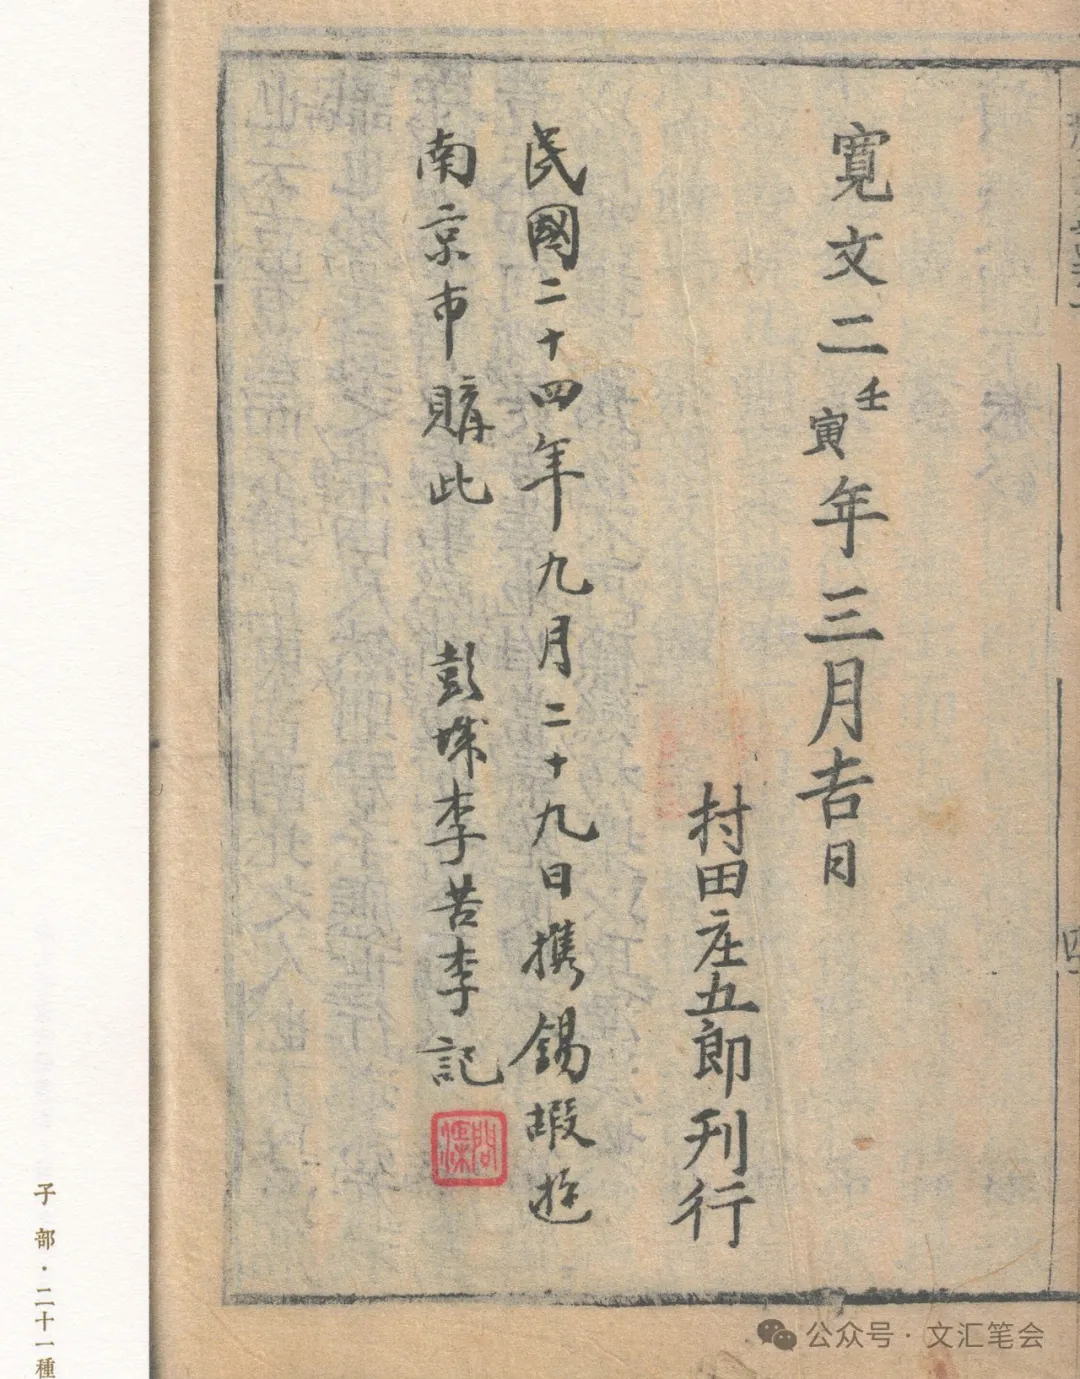 寛文二壬寅年三月吉日
村田庄五郎刊行
民國二十四年九月二十九日攜錫嘏遊
南京市購此 彭城李苦李記
子部·二十一種
公众号·文汇笔会